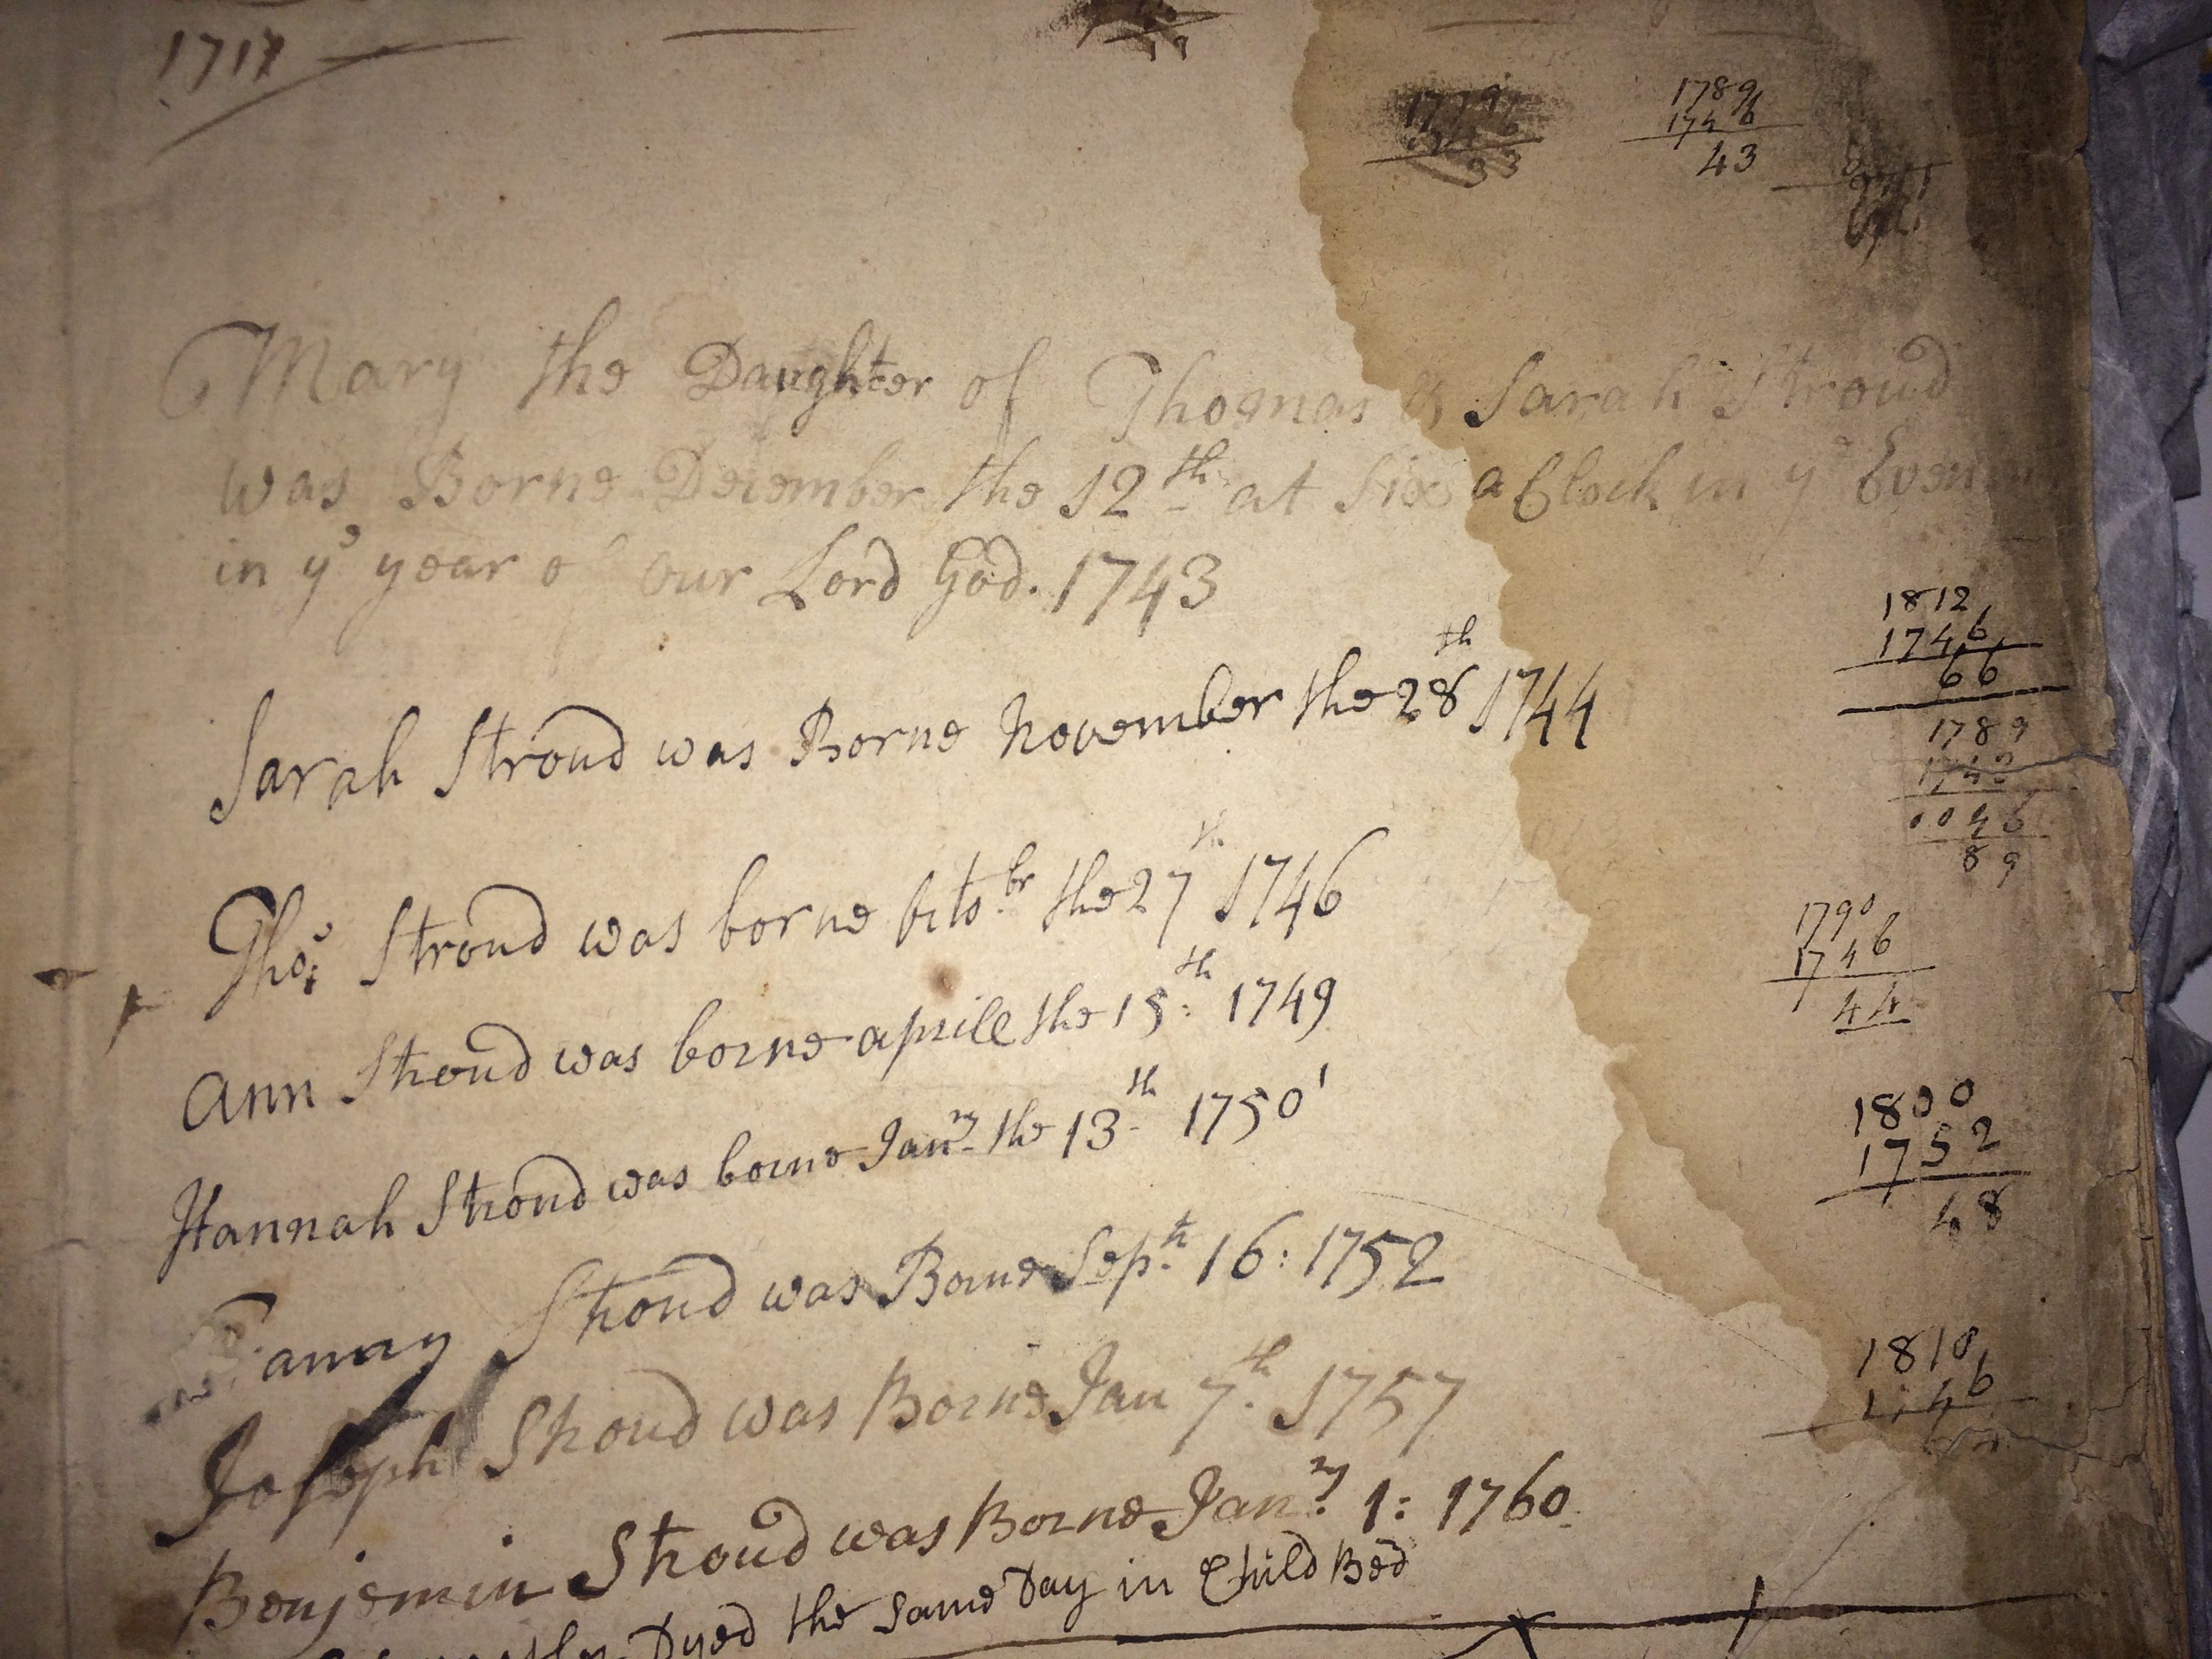 1717
1789
1746
43
Mary the Daughter of Thomas & Sarah Stroud
was Borne December the 12th at Six a Clock in ye
in ye year of our Lord God. 1743
1812
1746
66
Sarah Stroud was Borne November the 28th 1744
1789
1743
0046
89
Thos Stroud was borne octobr the 27th 1746
1790
1746
44
Ann Stroud was borne aprill the 15th 1749
Hannah Stroud was borne Janry the 13th 1750/1
1800
1752
48
Fanny Stroud was Borne Septr 16: 1752
1810
Joseph Stroud was Borne Jan 7th 1757
Benjemin Stroud was Borne Janry 1: 1760
Dyed the same Day in Child Bed